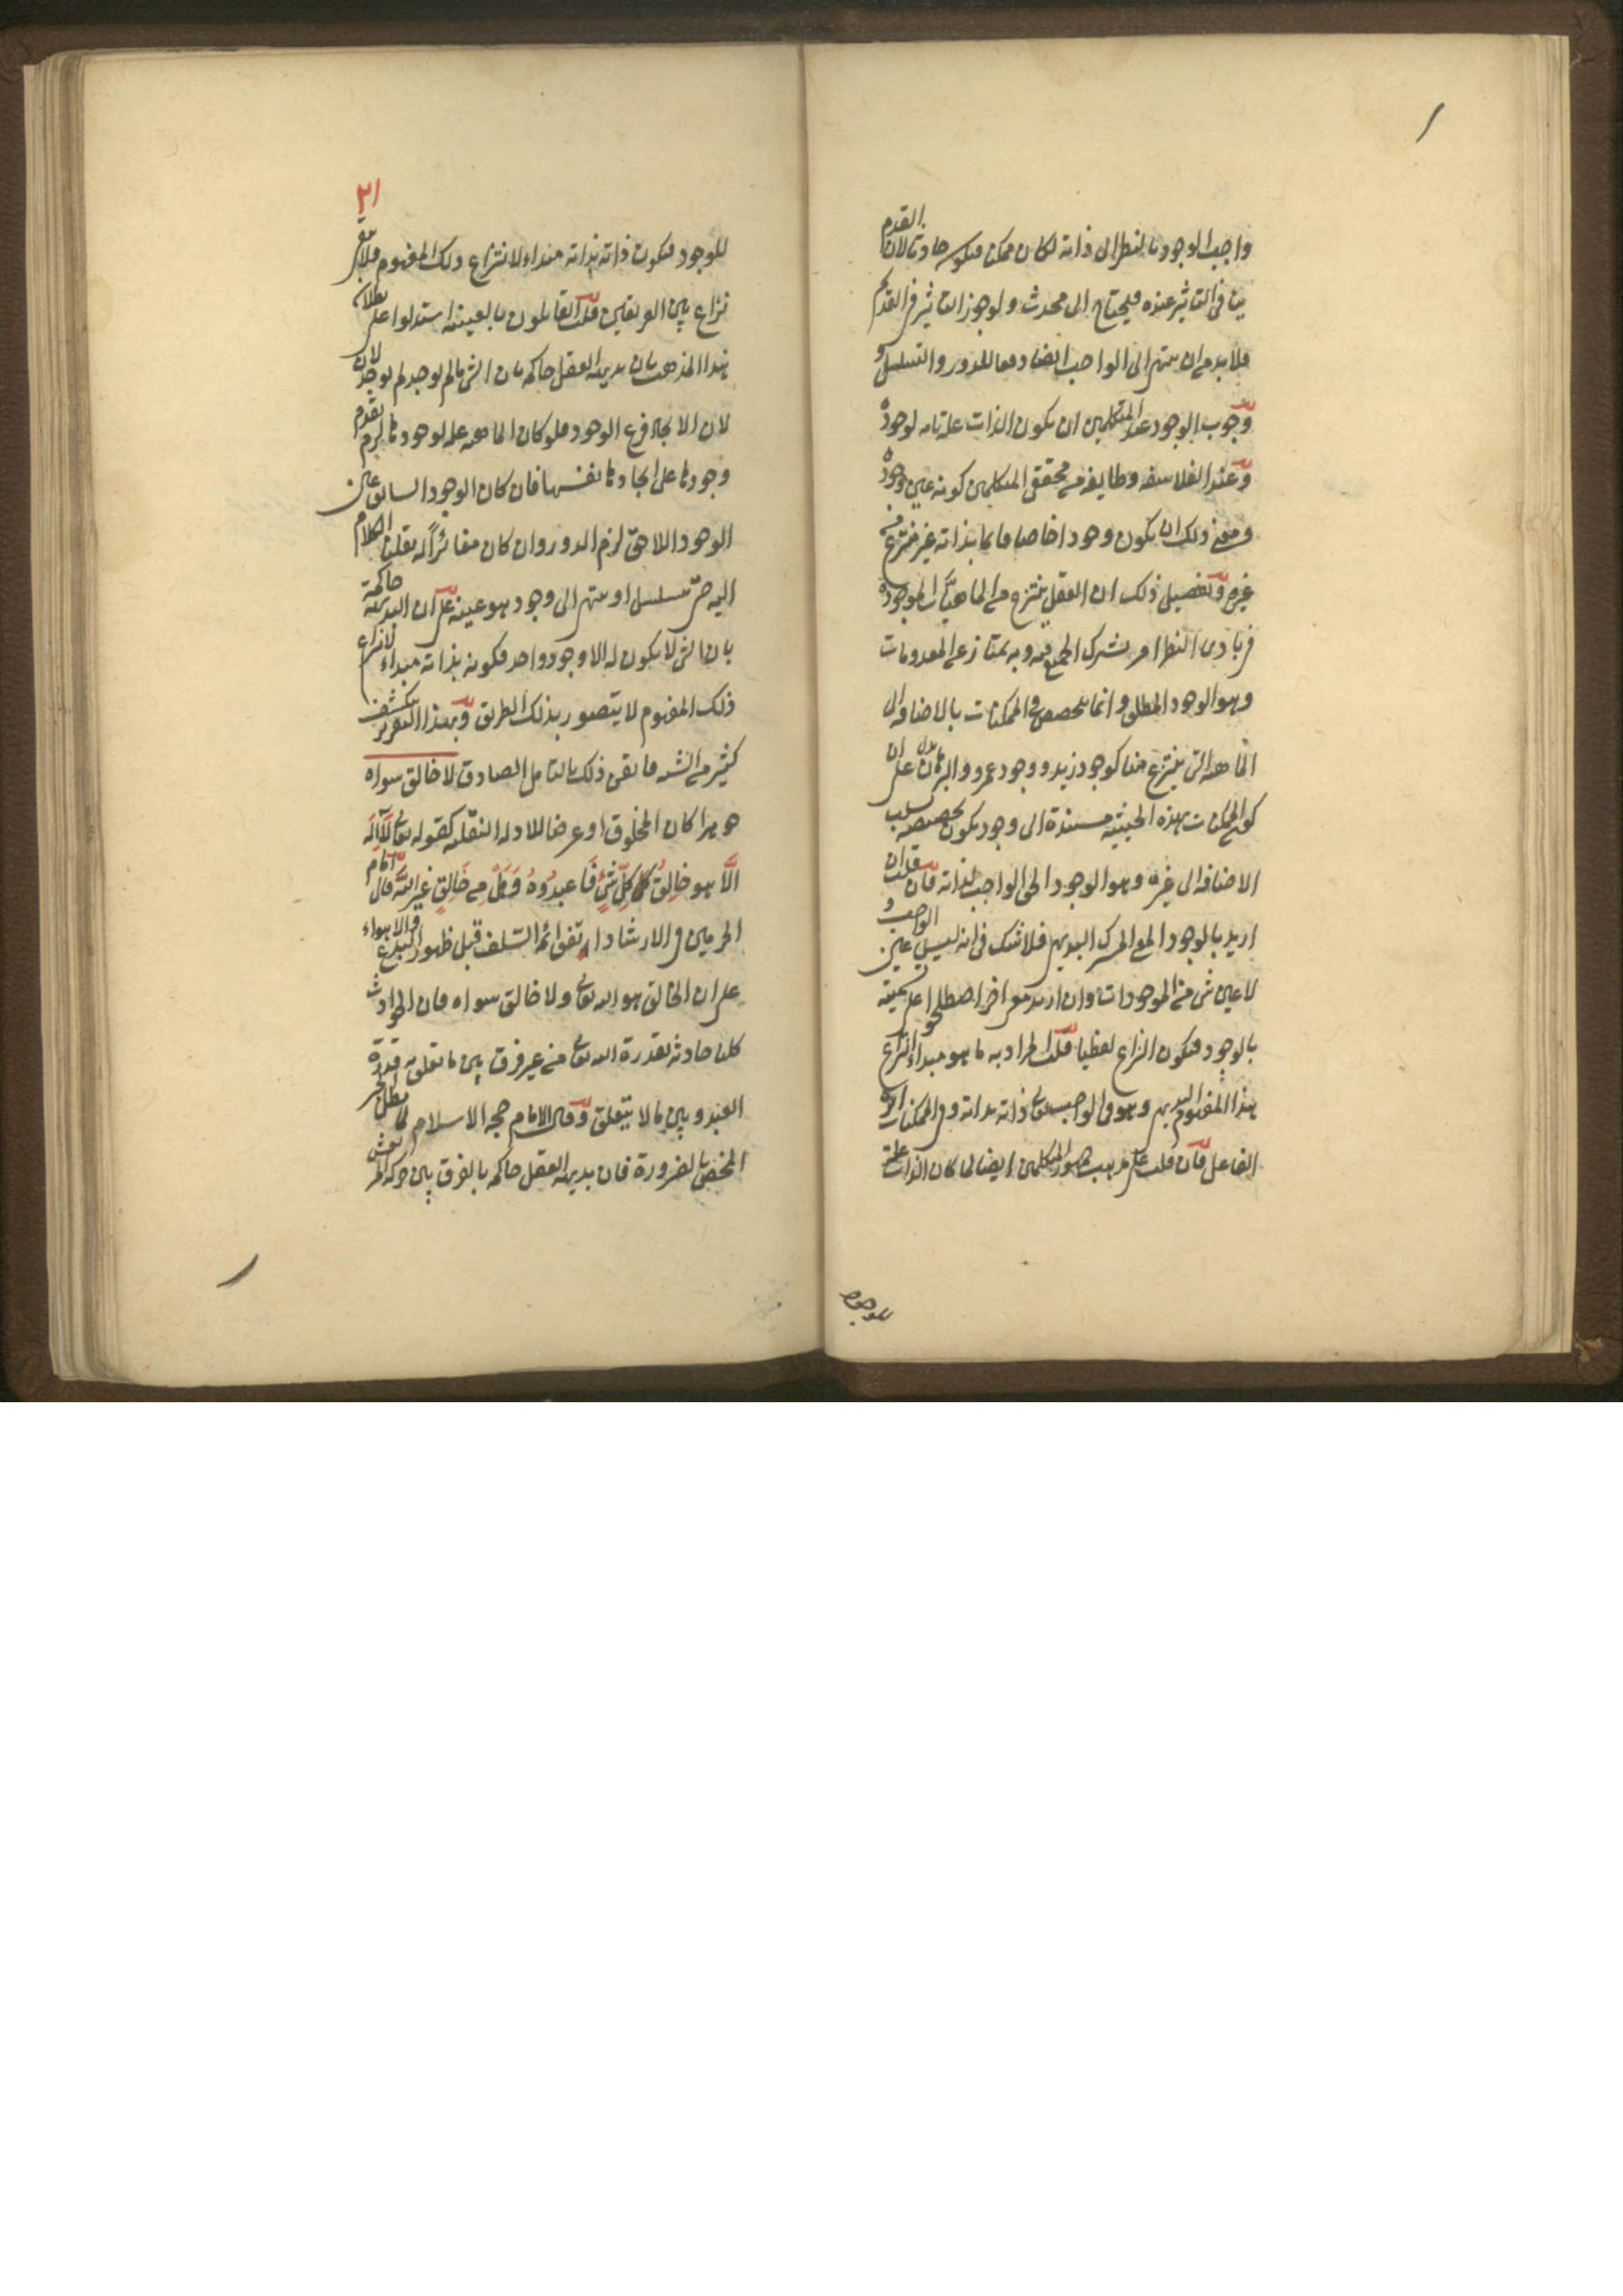 واجب الوجود بالنظر الى ذاته لكان ممكنا فيكون حادثا لان القدم
ينافي التاثير عنده فيحتاج الى محدث ولو جوز التاثير في القديم
فلا بد من ان ينتهي الى الواجب ايضا دفعا للدور والتسلسل و
وجوب الوجود عند المتكلمين ان يكون الذات علة تامه لوجوده
وعند الفلاسفه وطايفه من محققي المتكلمين كونه عين وجوده
ومعنى ذلك ان يكون وجودا خاصا قايما بذاته غير منتزع من
غيره وتفصيل ذلك ان العقل ينتزع من الماهيات الموجودة
في بادى النظر امر يشترك الجميع فيه وبه يمتاز عن المعدومات
وهو الوجود المطلق وانما يتخصص في الممكنات بالاضافه الى
الماهيه التي ينتزع منها كوجود زيد ووجود عمرو والبرهان يدل على ان
كون الممكنات بهذه الحيثيه مستندة الى وجود يكون تخصيصه بسلب
الاضافه الى غيره وهو الوجود الحق الواجب لذاته فان قلت ان
اريد بالوجود المعنى المشترك البديهي فلا شك في انه ليس عين الواجب و
لا عين شئ من الموجودات وان اريد معنى اخر اصطلحوا على تسميته
بالوجود فيكون النزاع لفظيا قلت المراد به ما هو مبداء انتزاع
هذا المفهوم البديهي وهو في الواجب تعالى ذاته بذاته وفي الممكنات اثر
الفاعل فان قلت على مذهب جمهور المتكلمين ايضا لما كان الذات علة
للوجود
٢١
للوجود فيكون ذاته بذاته مبداء لانتزاع ذلك المفهوم فلا يبقى
نزاع بين الفريقين قلت القايلون بالعينيه استدلوا على بطلان
هذا المذهب بان بديهة العقل حاكمه بان الشئ ما لم يوجد لم يوجد لان
لان الايجاد فرع الوجود فلو كان الماهيه علة لوجودها لزم تقدم
وجودها على ايجادها نفسها فان كان الوجود السابق عين
الوجود اللاحق لزم الدور وان كان مغائرا له نقلنا الكلام
اليه حتى يتسلسل او ينتهي الى وجود هو عينه على ان البديهة حاكمة
بان الشئ لا يكون له الا وجود واحد فكونه بذاته مبداء لانتزاع
ذلك المفهوم لا يتصور بذلك الطريق وبهذا التقرير ينكشف
كثير من الشبه فاتقن ذلك بالتامل الصادق لا خالق سواه
جوهرا كان المخلوق او عرضا للادله النقليه كقوله تعالى لا اله
الا هو خالق كل شئ فاعبدوه وهل من خالق غير الله قال امام
الحرمين في الارشاد اتفق ائمة السلف قبل ظهور البدع والاهواء
على ان الخالق هو الله تعالى ولا خالق سواه فان الحوادث
كلها حادثه بقدرة الله تعالى من غير فرق بين ما تعلق به قدرة
العبد وبين ما لا يتعلق وقال الامام حجه الاسلام لما بطل الجبر
المحض بالضرورة فان بديهه العقل حاكمه بالفرق بين حركه المرتعش